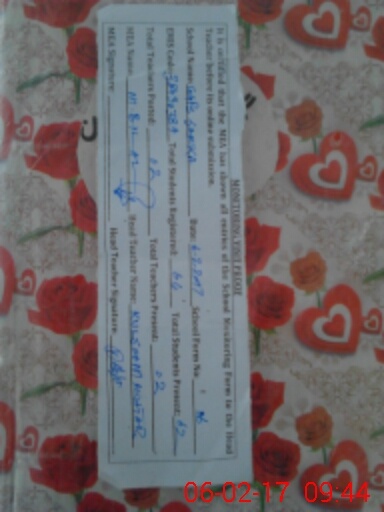 MONITORING VISIT PROOF
It is certified that the MEA has shown all entries of the School Monitoring Form to the Head
Teacher before its online submission.
School Name: GGPS Date: 6-2-2017 School Form No:
EMIS Code: Total Students Registered: 66 Total Students Present: 62
Total Teachers Posted: 02 Total Teachers Present: 02
MEA Name: Head Teacher Name: KULSOOM
MEA Signature: Head Teacher Signature:
06-02-17 09:44